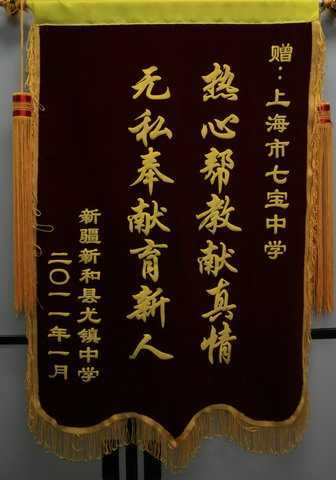 赠：上海市七宝中学
热心帮教献真情
无私奉献育新人
新疆新和县尤镇中学
二〇一一年一月